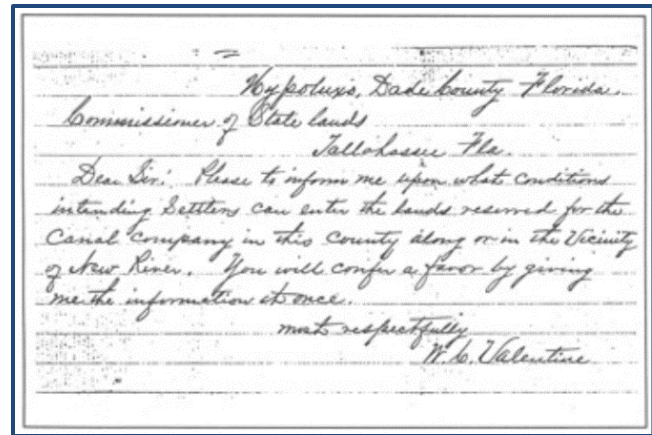 Hypoluxo, Dade County Florida.
Commissioner of State lands
Tallahassee Fla.
Dear Sir: Please to inform me upon what conditions
intending Settlers can enter the lands reserved for the
Canal company in this County along or in the Vicinity
of New River. You will confer a favor by giving
me the information at once.
most respectfully
W. C. Valentine